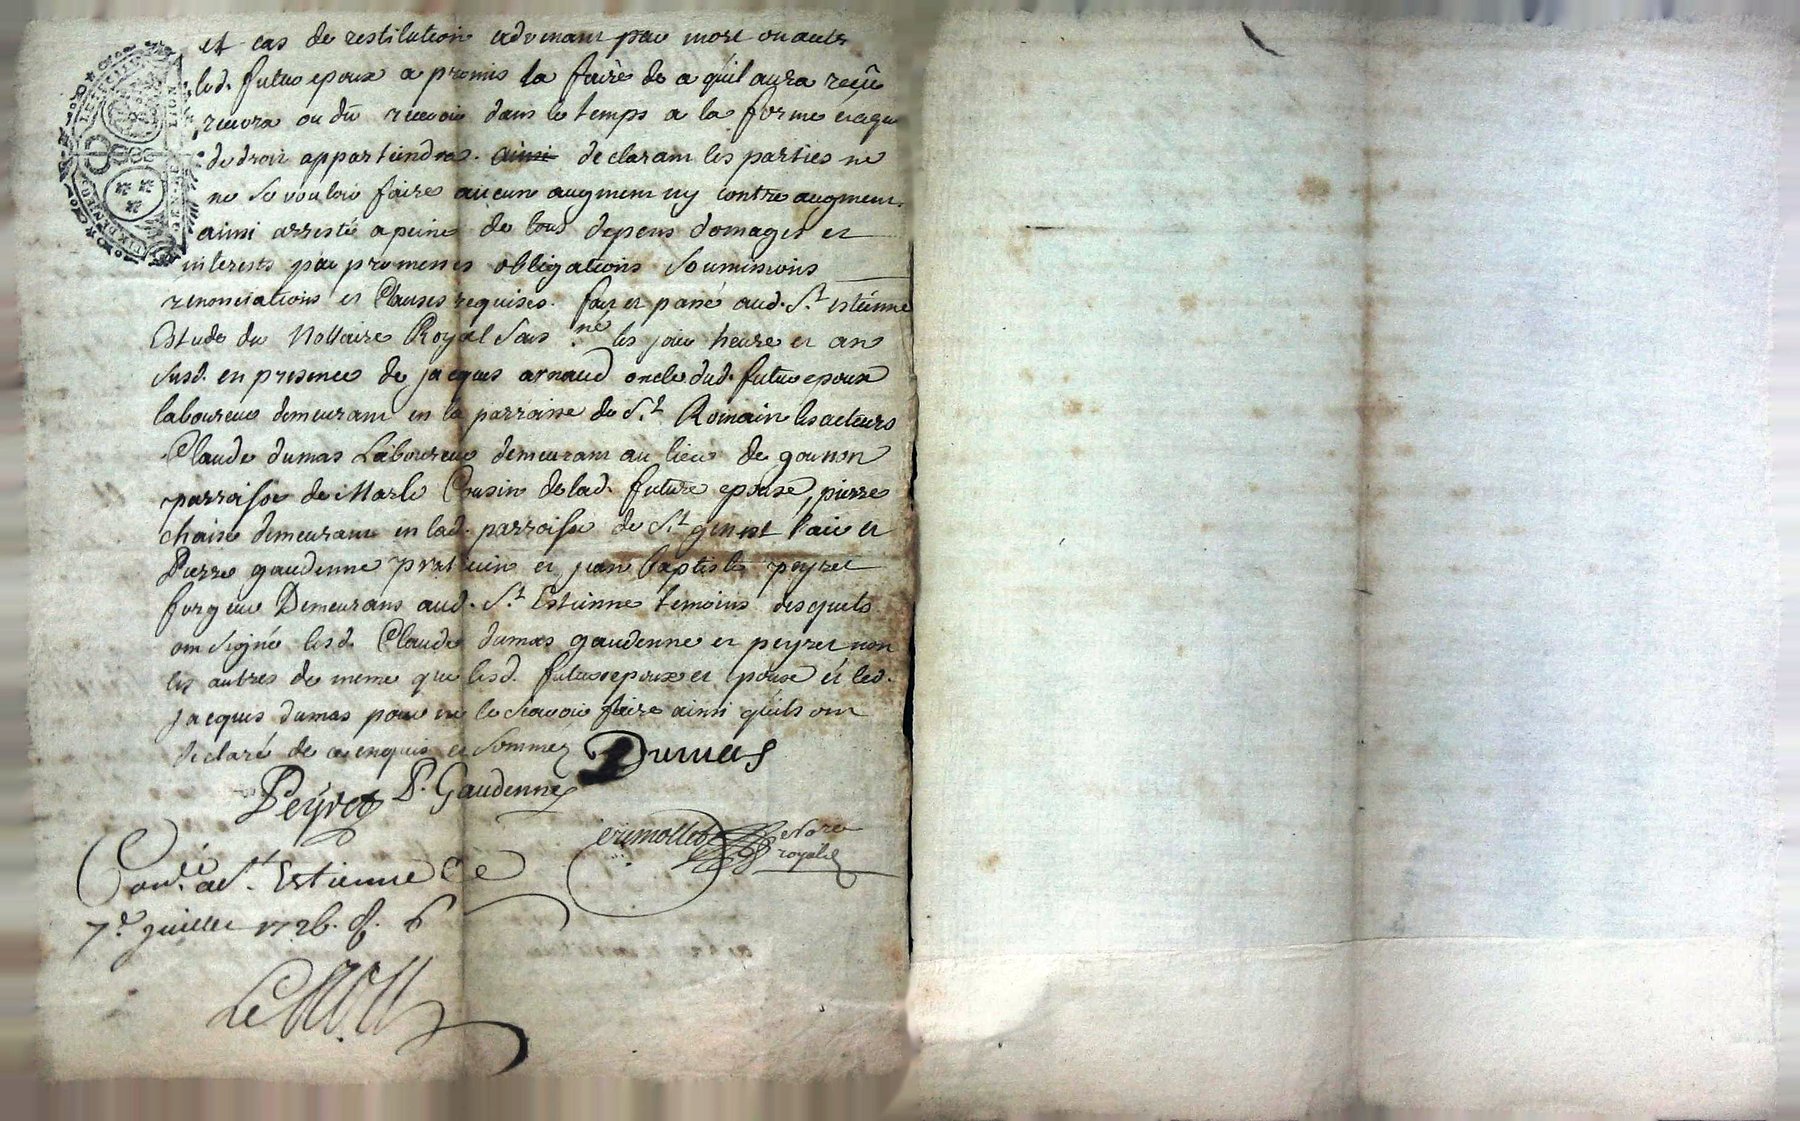 et cas de restitution advenant par mort ou autr
led. futur epoux a promis la faire de ce qu'il aura reçû
recevra ou dû recevoir dans le temps a la forme et a qui
de droit appartiendra. ainsi declarant les parties ne
ne se vouloir faire aucune augment ny contre augment.
ainsi arresté a peine de tous depens domages et
interests par promesses obligations soumissions
renonciations et Clauses requises. fait et passé aud. St. estienne
Estude du Nottaire Royal sous.né les jour heure et an
susd. en presence de jacques arnaud oncle dud. futur epoux
laboureur demeurant en la parroisse de St. Romain les atteurs
Claude dumas Laboureur demeurant au lieu de gounon
parroisse de Marls Cousin de lad. future epouse, pierre
chaise demeurant en lad. parroisse de St. genest l'air et
Pierre gaudenne praticien et jean baptiste peyret
forgeur Demeurans aud. St. Estienne temoins desquels
ont signée lesd. Claude dumas gaudenne et peyret non
les autres de meme que lesd. futurs epoux et epouse et led.
jacques dumas pour ne le scavoir faire ainsi qu'ils ont
declaré de ce enquis et sommez Dumas
Peyret P. Gaudenne
royal
Con.lé a St. Estienne Ce
7.e juillet 1726. R. 6